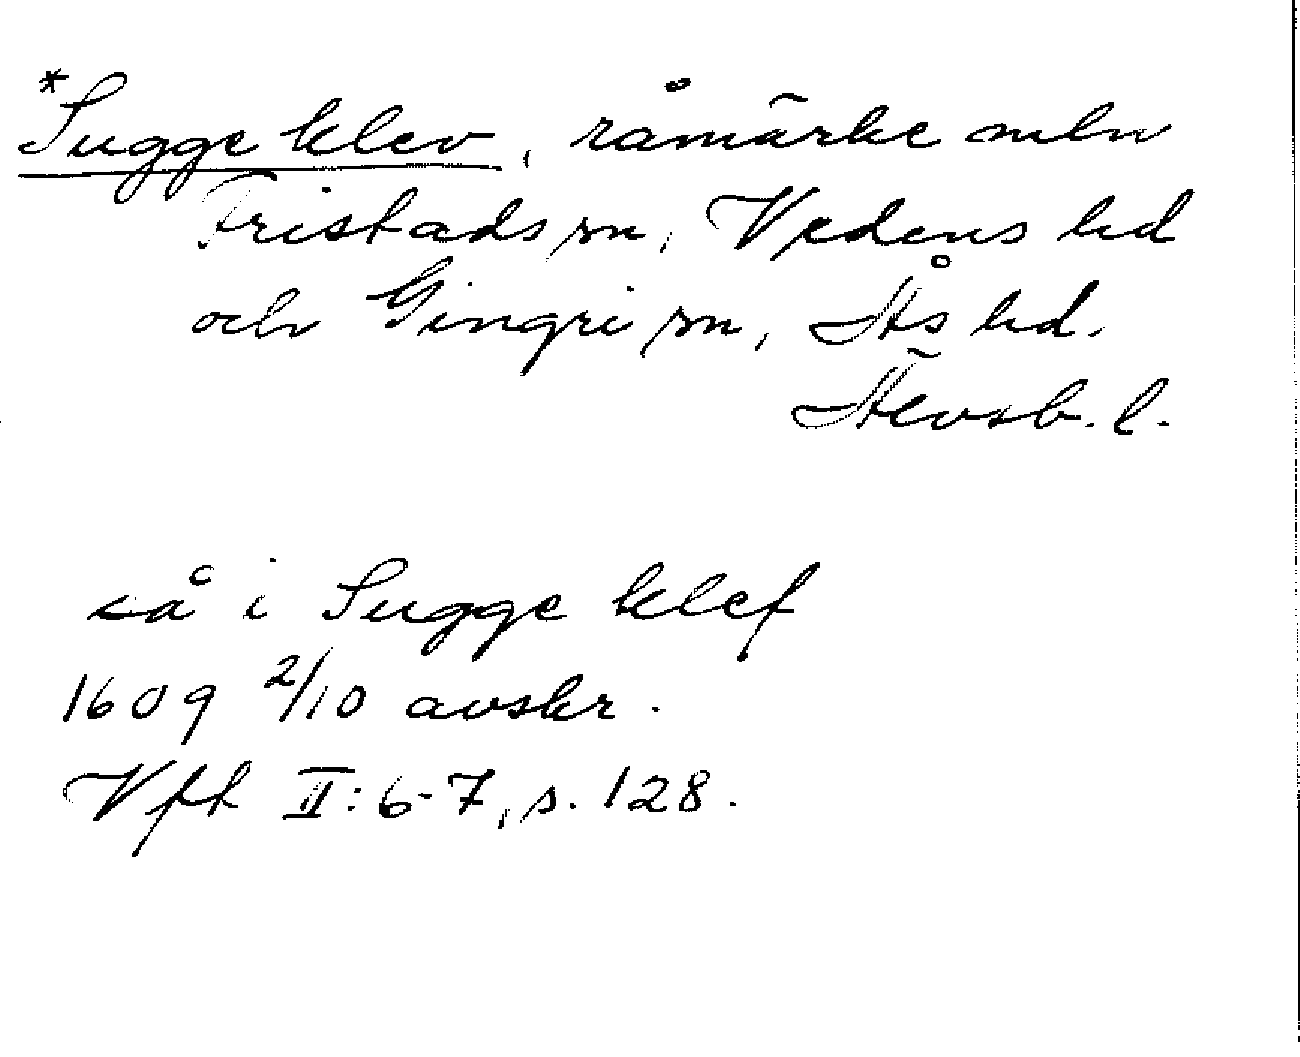 *Sugge klev, råmärke mln
Fristads sn, Vedens hd
och Gingri sn, Ås hd.
Älvsb. l.
så i Sugge klef
1609 2/10 avskr.
Vft II: 6-7, s. 128.